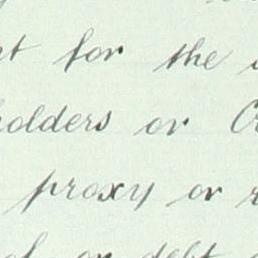 for the
holders or
proxy or
or debt